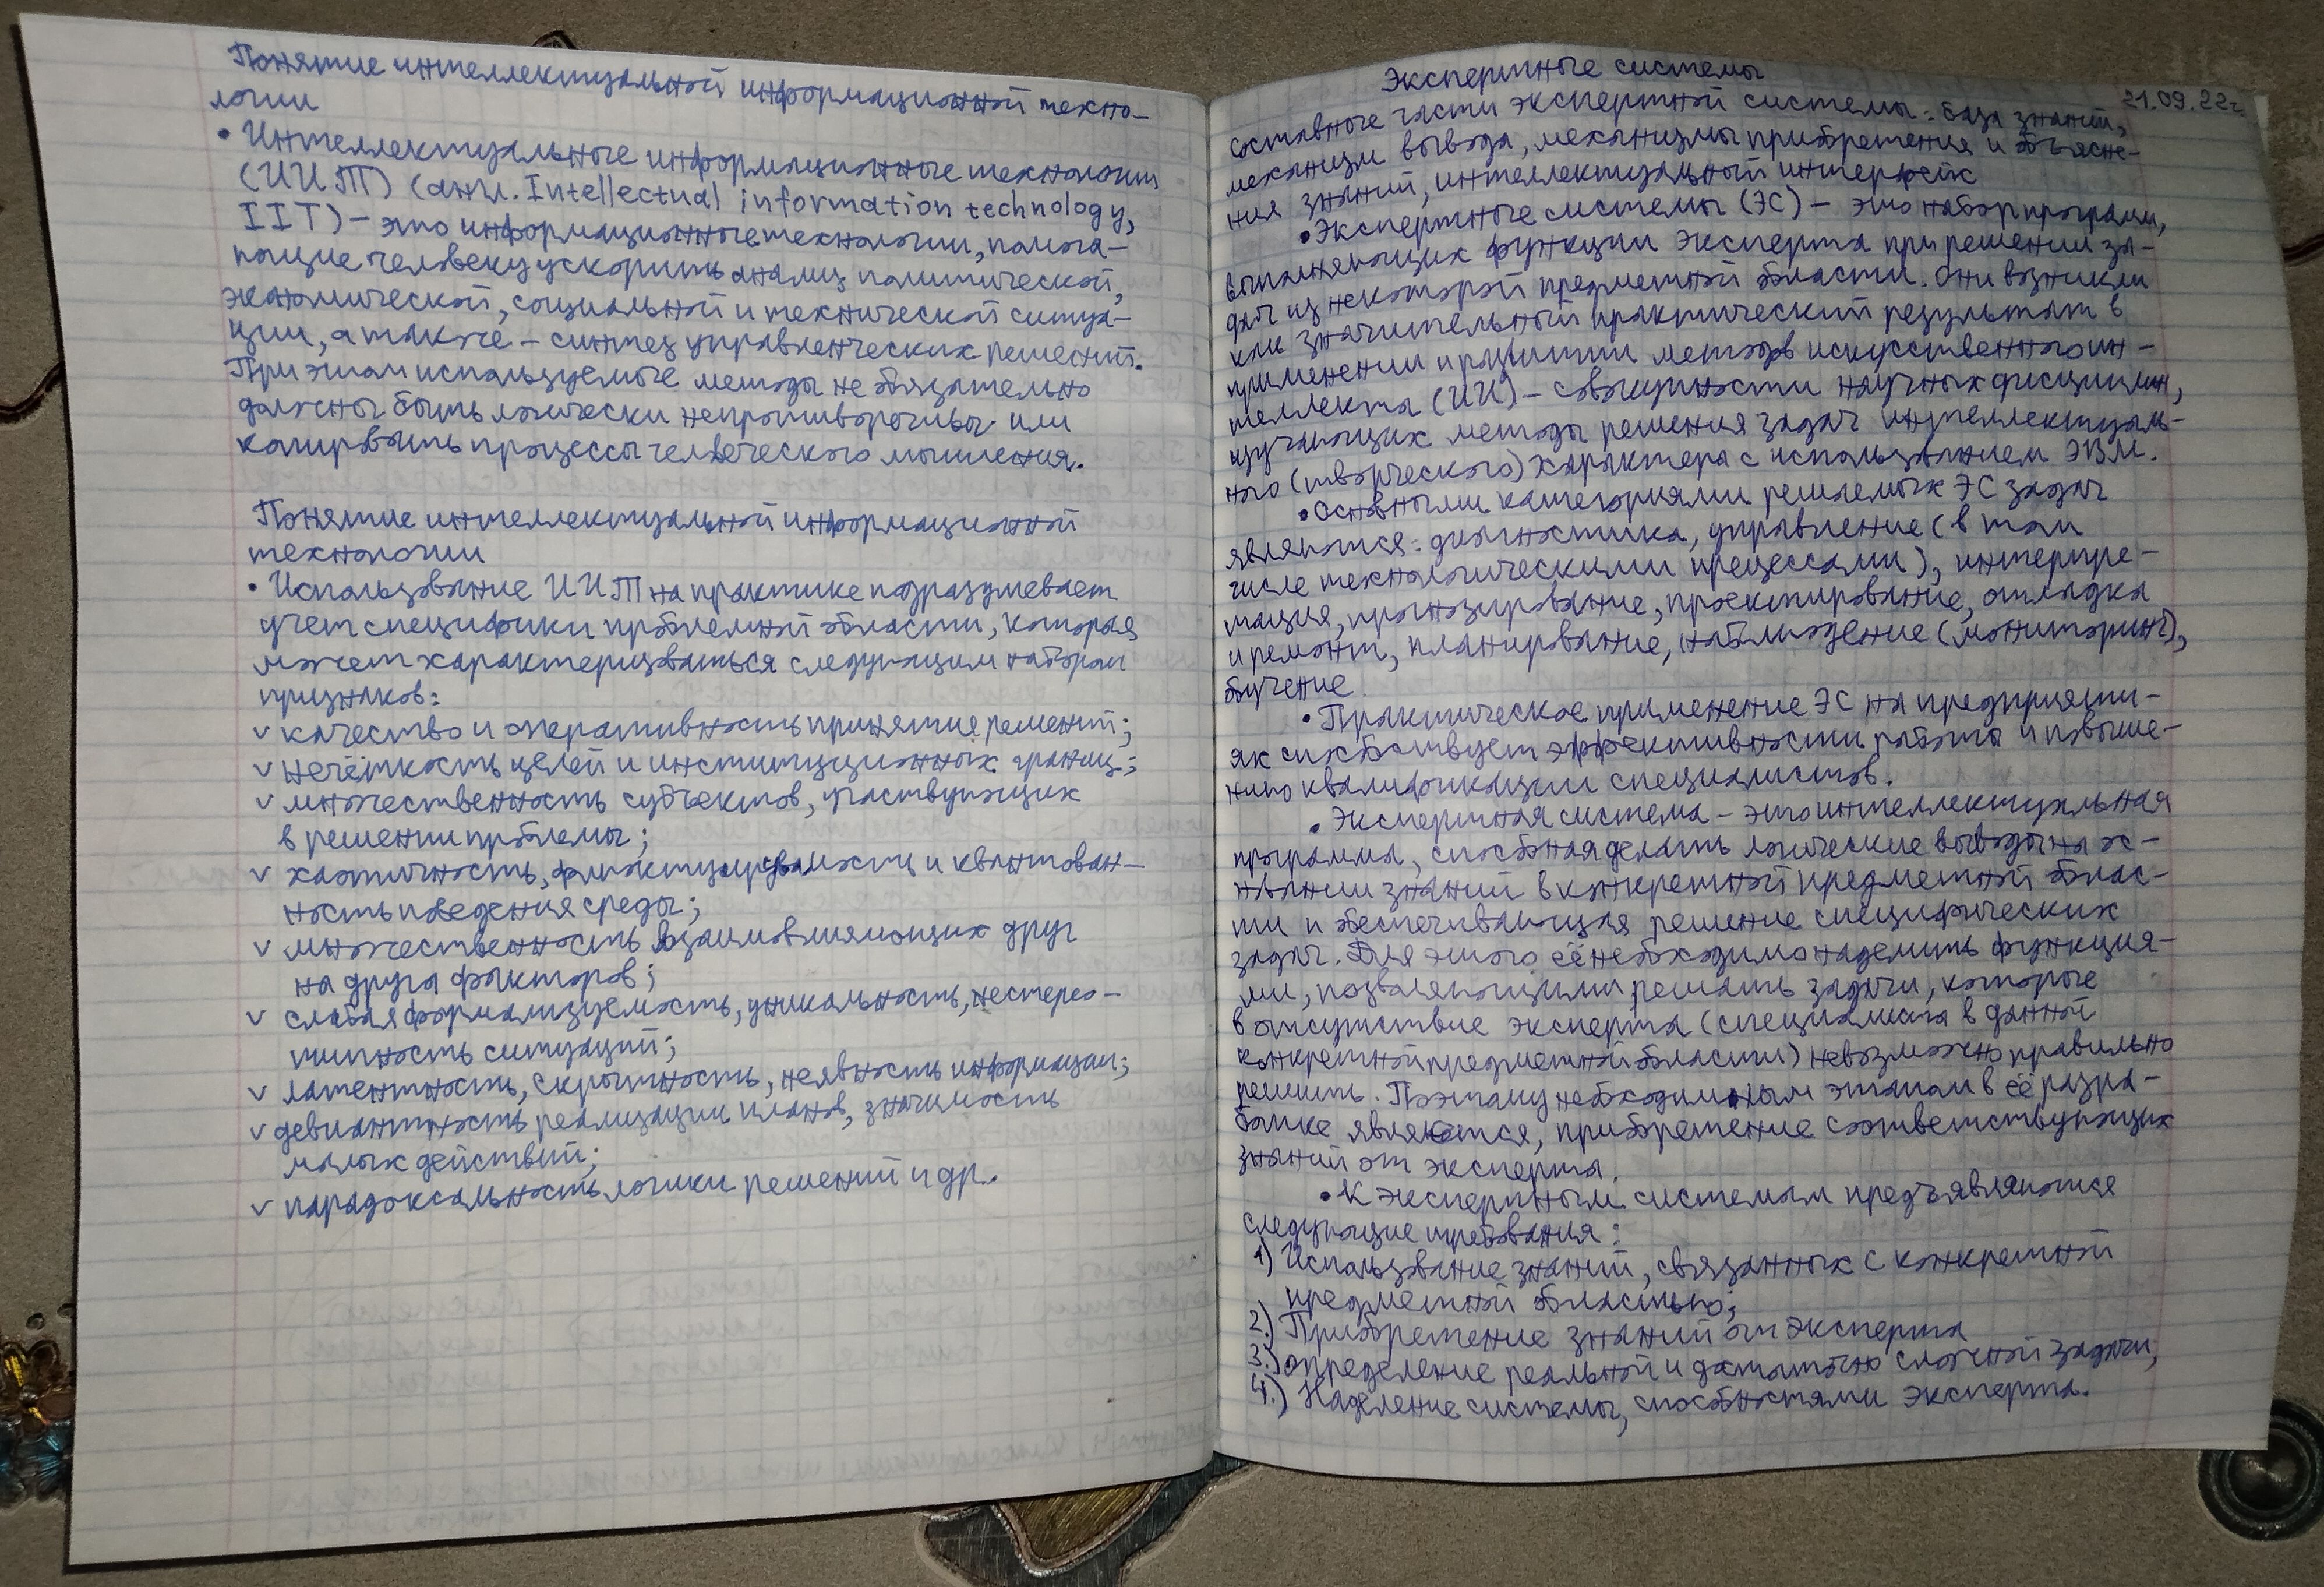 Понятие интеллектуальной информационной техно-
логии
• Интеллектуальные информационные технологии
(ИИТ) (англ. Intellectual information technology,
IIT) – это информационные технологии, помога-
ющие человеку ускорить анализ политической,
экономической, социальной и технической ситуа-
ции, а также – синтез управленческих решений.
При этом используемые методы не обязательно
должны быть логически непротиворечивы или
копировать процессы человеческого мышления.
Понятие интеллектуальной информационной
технологии
• Использование ИИТ на практике подразумевает
учет специфики проблемной области, которая
может характеризоваться следующим набором
признаков:
v качество и оперативность принятие решений;
v нечёткость целей и институционных границ;
v множественность субъектов, участвующих
в решении проблемы;
v хаотичность, флюктуируемость и квантован-
ность поведения среды;
v множественность взаимовлияющих друг
на друга факторов;
v слабая формализуемость, уникальность, нестерео-
типность ситуаций;
v латентность, скрытность, неявность информации;
v девиантность реализации планов, значимость
малых действий;
v парадоксальность логики решений и др.
Экспертные системы
21.09.22г.
Составные части экспертной системы: база знаний,
механизм вывода, механизмы приобретения и объясне-
ния знаний, интеллектуальный интерфейс
• Экспертные системы (ЭС) – это набор программ,
выполняющих функции эксперта при решении за-
дач из некоторой предметной области. Они возникли
как значительный практический результат в
применении и развитии методов искусственного ин-
теллекта (ИИ) – совокупности научных дисциплин,
изучающих методы решения задач интеллектуаль-
ного (творческого) характера с использованием ЭВМ.
• Основными категориями решаемых ЭС задач
являются: диагностика, управление (в том
числе технологическими процессами), интерпре-
тация, прогнозирование, проектирование, отладка
и ремонт, планирование, наблюдение (мониторинг),
обучение.
• Практическое применение ЭС на предприяти-
ях способствует эффективности работы и повыше-
нию квалификации специалистов.
• Экспертная система – это интеллектуальная
программа, способная делать логические выводы на ос-
новании знаний в конкретной предметной облас-
ти и обеспечивающая решение специфических
задач. Для этого её необходимо наделить функция-
ми, позволяющими решать задачи, которые
в отсутствие эксперта (специалиста в данной
конкретной предметной области) невозможно правильно
решить. Поэтому необходимым этапом в её разра-
ботке является, приобретение соответствующих
знаний от эксперта.
• К экспертным системам предъявляются
следующие требования:
1) Использование знаний, связанных с конкретной
предметной областью;
2.) Приобретение знаний от эксперта
3.) Определение реальной и достаточно сложной задачи;
4.) Наделение системы, способностями эксперта.